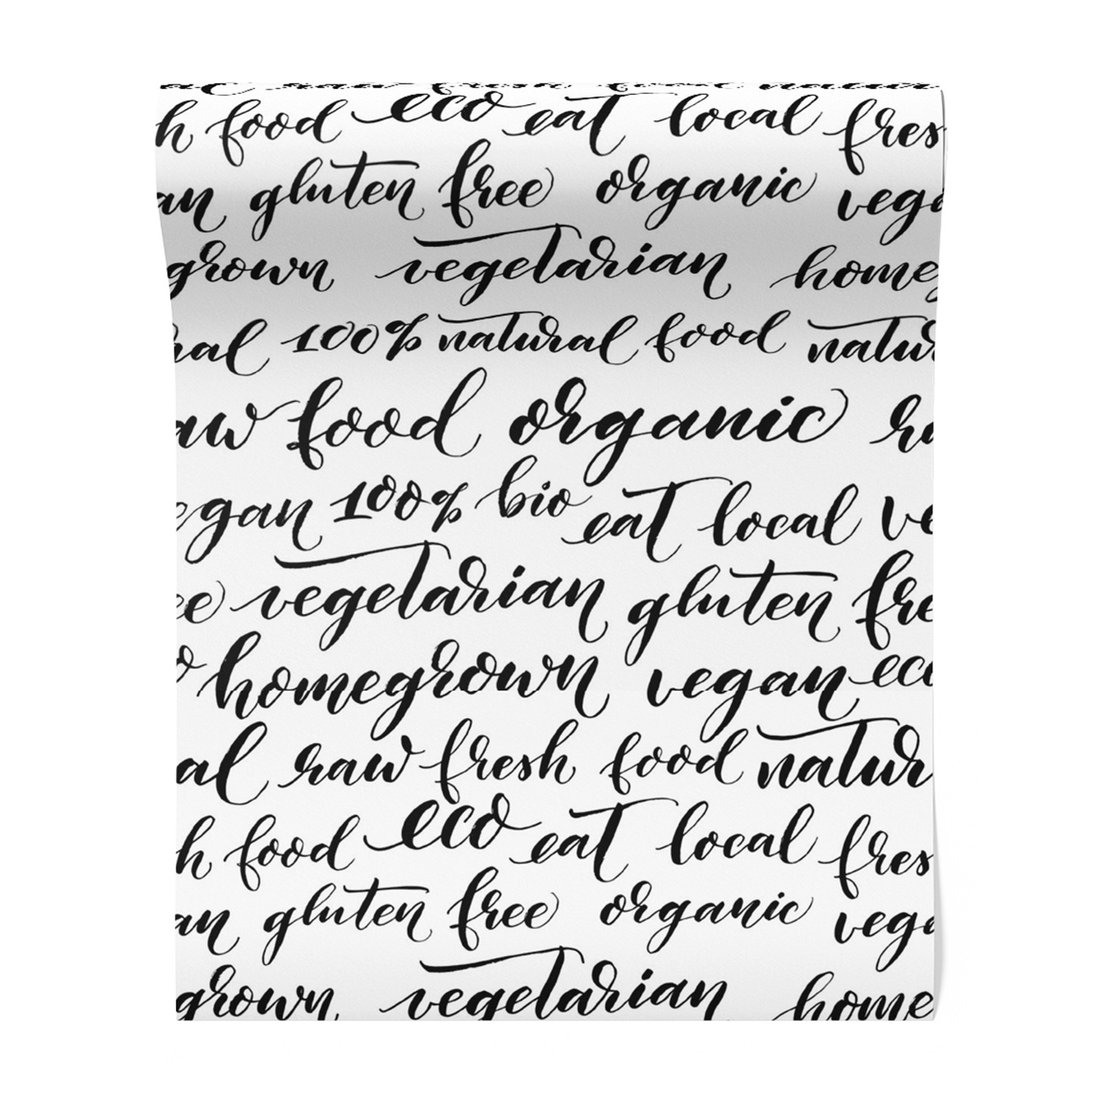 h food eco eat local fres
an gluten free organic vega
grown vegetarian home
ral 100% natural food natur
aw food organic ra
egan 100% bio eat local ve
ee vegetarian gluten fre
o homegrown vegan eco
al raw fresh food natur
h food eco eat local fres
an gluten free organic vega
grown vegetarian home